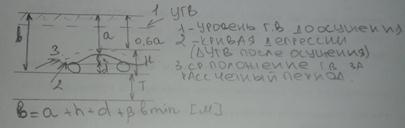 1 УГВ
в
a
0,6a
3
2
h
d
H
T
1 - УРОВЕНЬ Г.В ДО ОСУШЕНИЯ
2 - КРИВАЯ ДЕПРЕССИИ
(УГВ ПОСЛЕ ОСУШЕНИЯ)
3. СР. ПОЛОЖЕНИЕ Г.В ЗА
РАСЧЕТНЫЙ ПЕРИОД.
в = a + h + d + β вmin [м]